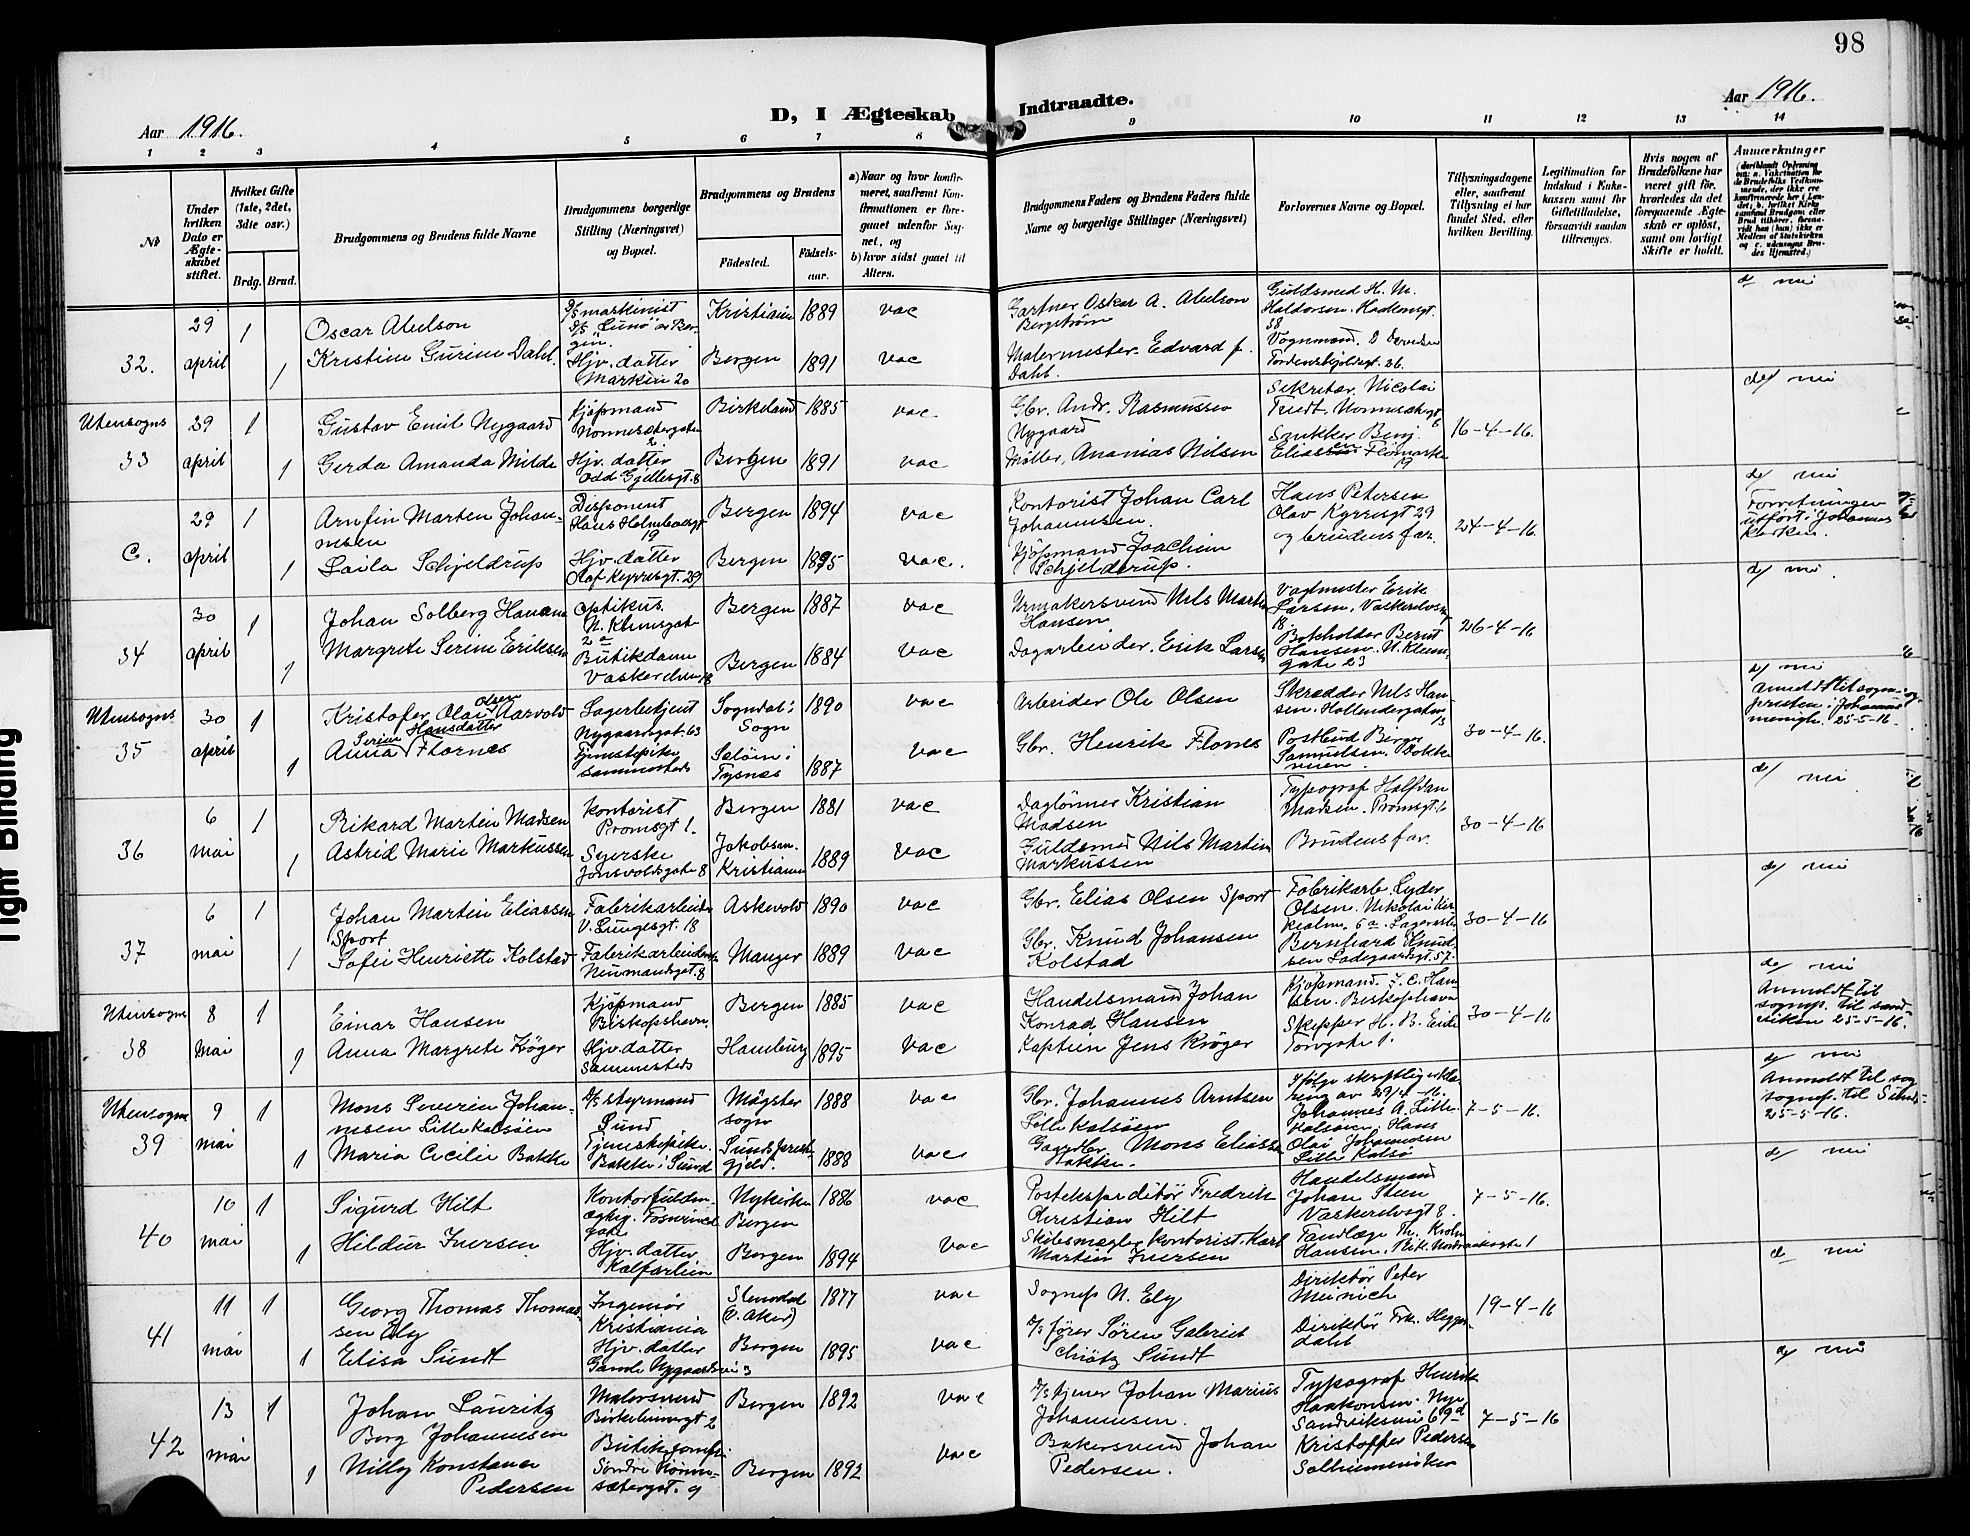 98
Aar 1916.
D, I Ægteskab Indtraadte.
Aar 1916.
1 2 3 4 5 6 7 8 9 10 11 12 13 14
No
Under hvilken Dato er Ægteskabet stiftet.
Hvilket Gifte (1ste, 2det, 3die osv.)
Brdg. Brud.
Brudgommens og Brudens fulde Navne
Brudgommens borgerlige Stilling (Næringsvei) og Bopæl.
Brudgommens og Brudens
Födested. Födselsaar.
a) Naar og hvor konfirmeret, saafremt Konfirmationen er foregaaet udenfor Sognet, og
b) hvor sidst gaaet til Alters.
Brudgommens Faders og Brudens Faders fulde Navne og borgerlige Stillinger (Næringsvei)
Forlovernes Navne og Bopæl.
Tillysningsdagene eller, saafremt Tillysning ei har fundet Sted, efter hvilken Bevilling.
Legitimation for Indskud i Enkekassen samt for Giftetilladelse, forsaavidt saadan tiltrenges.
Hvis nogen af Brudefolkene har været gift før, hvorledes da det foregaaende Ægteskab er oplöst, samt om lovligt Skifte er holdt.
Anmærkninger
32. 29 april 1 1
Oscar Abelson
Kristine Gurine Dahl.
Hjv. datter
Marken 20
Kristiania 1889 vac
Bergen 1891 vac
Gartner Oskar A. Abelson
Bergström
Malermester Edvard J.
Dahl.
Guldsmed H. M.
Haldorsen. Haakonsgt
38
Vognmand
Tordenskjoldsgt. 26.
Utensogns
33 29 april 1 1
Gustav Emil Nygaard
Gerda Amanda Milde
Kjøpmand
Nonnesætergaten
2
Hjv. datter
Odd Gjellesgt. 8
Birkeland 1885 vac.
Bergen 1891 vac
Gbr. Andr. Rasmussen
Nygaard
Møller, Ananias Nilsen
Sekretær. Nicolai
16-4-16.
C. 29 april 1 1
Arnfin Marten Johannesen
Laila Schjeldrup
Disponent
Hans Holmboesgt
19
Hjv. datter
Olaf Kyrresgt. 29
Bergen 1894 vac
Bergen 1895 vac.
Kontorist Johan Carl
Johannesen.
Kjöpmand Joachim
Schjelderup.
Hans Petersen
Olav Kyrresgt 29
og brudens far.
24-4-16.
Forretningen
utfört i Johannes
kirken.
34 30 april 1 1
Johan Solberg Hansen
Margrete Serine Eriksen
Optikus.
N. Klemsgate
2a
Butikdame
Vaskerelven 18
Bergen 1887 vac
Bergen 1884 vac
Urmakersvend Nils Martin
Hansen
Dagarbeider. Erik Larsen
Vagtmester Erik
Larsen. Vaskerelven
18.
Bokholder Bernt
Hansen. N. Klem
gate 23
26-4-16
Utensogns
35 30 april 1 1
Kristofer Olai Olsen Aarvold
Anna Serine Hansdatter Flornes
Lagerbetjent
Nygaardsgt. 63
Tjenestepike
sammesteds
Sogndal i
Sogn 1890 vac
Selöin i
Tysnes 1887 vac
Arbeider Ole Olsen
Gbr. Henrik Flornes
Skrædder Nils Hansen. Hollendergaten
13
Postbud Berger
Samuelsen. Dokkeveien.
30-4-16.
Anmeldt til sognepresten i Johannes
menigh. 25-5-16.
36 6 mai 1 1
Rikard Martin Madsen
Astrid Marie Markussen
Kontorist
Promsgt 1.
Syerske
Jonsvoldsgate 8
Bergen 1881 vac
Jakobsm.
Kristiania 1889 vac
Daglönner Kristian
Madsen
Guldsmed Nils Martin
Markussen
Typograf Halfdan
Madsen. Promsgt. 6
Brudens far.
30-4-16
37 6 mai 1 1
Johan Martin Eliassen
Sport
Sofie Henriette Kolstad
Fabrikarbeider
V. Lungesgt. 18
Fabrikarbeiderske
Neumansgt. 8
Askevold 1890 vac
Manger 1889 vac
Gbr. Elias Olsen Sport
Gbr. Knud Johansen
Kolstad
Fabrikarb. Lyder
Olsen. Nikolai kirkealm. 6a.
Bernhard Knudsen Ladegaardsgt. 57.
30-4-16
Utensogns
38 8 Mai 1 1
Einar Hansen
Anna Margrete Kröger
Kjöpmand
Biskopshavn.
Hjv. datter
Sammesteds
Bergen 1885 vac
Hamburg 1895 vac
Handelsmand Johan
Konrad Hansen
Kaptein Jens Kröger
Kjöpmand. J. C. Hansen. Biskopshavn
Skipper H. B. Eide
Torvgate 1.
30-4-16
Anmeldt til
sognep. til Sandviken 25-5-16.
Utensogns
39 9 mai 1 1
Mons Severin Johannesen Lille Kalsöen
Maria Cicilie Bakke
D/S styrmand
Sund
Tjenestepike.
Bakke. Sund
Mögster
sogn 1888 vac
Sunds prestegjeld. 1888 vac
Gbr. Johannes Arntsen
Lille Kalsöen
Gaardbr. Mons Eliassen
Bakke.
Ifölge skriftlig erklæring av 29/4-16.
Johannes A. Lille
Kalsöen. Hans
Olai Johannesen
Lille Kalsö
7-5-16.
Anmeldt til
sognep. til Sund
25-5-16.
40 10 mai 1 1
Sigurd Hilt
Hildur Iversen
Hjv. datter
Kalfarlien
Nykirken
Bergen 1886 vac
Bergen 1894 vac
Postekspeditör Fredrik
Christian Hilt
Skibsmægler kontorist. Karl
Martin Iversen
Handelsmand
Johan Steen
Vaskerelvsgt 8.
Tandlæge Th. Krohn
Hansen. Rik. Nordraaksgate 1
7-5-16.
41 11 mai 1 1
Georg Thomas Thomassen Ely
Elisa Sundt
Ingeniör
Kristiania
Hjv. datter
Gamle Nygaardsvei 3
1877 vac
Bergen 1895 vac
Sognep N. Ely
D/S förer Sören Gabriel
Schiötz Sundt
Direktör Peter
Meinich
Direktör Frk. Heggendahl
19-4-16
42 13 mai 1 1
Johan Lauritz
Berg Johannesen
Nilly Konstance
Pedersen
Malersvend
Birkelundsgt 2
Söndre Nonnesætergt. 9
Bergen 1892 vac
Bergen 1892 vac
Johan Marius
Johannesen.
Bakersvend Johan
Pedersen.
Typograf Henrik
Haakonsen. Nye
Sandviksvei 69d
Kristoffer Pedersen
Solheimsviken
7-5-16
Tight Binding